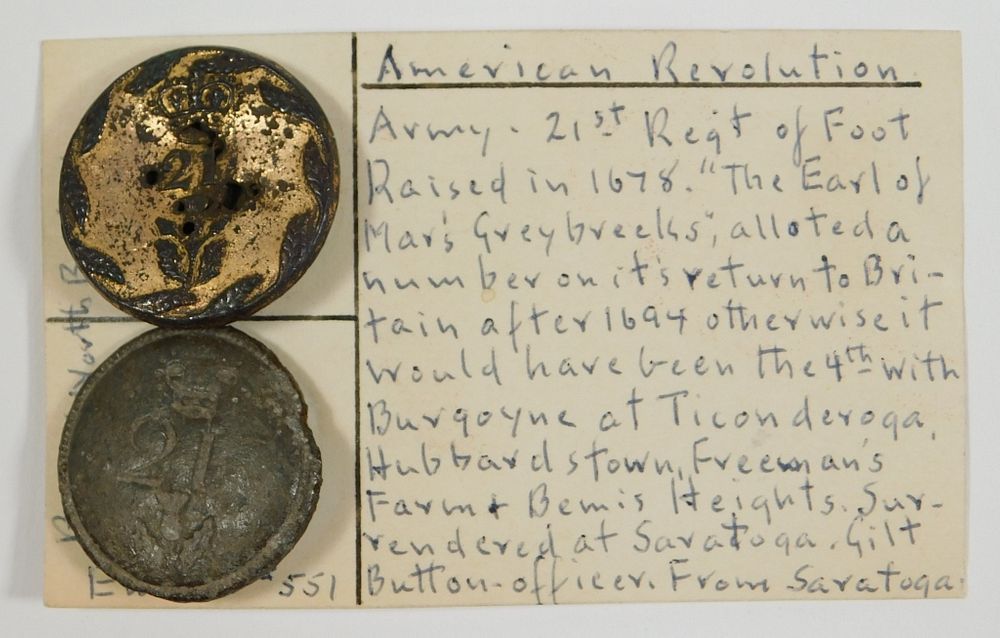 American Revolution.
Army. 21st Regt of Foot
Raised in 1678. "The Earl of
Mar's Greybreeks", alloted a
number on it's return to Bri-
tain after 1694 otherwise it
would have been the 4th with
Burgoyne at Ticonderoga,
Hubbardstown, Freeman's
Farm + Bemis Heights. Sur-
rendered at Saratoga. Gilt
Button-officer. From Saratoga.
21
21
551